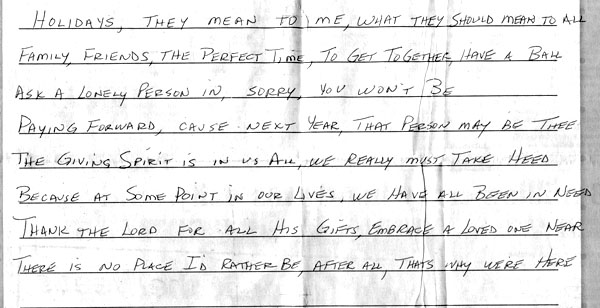 HOLIDAYS, THEY MEAN TO ME, WHAT THEY SHOULD MEAN TO ALL
FAMILY, FRIENDS, THE PERFECT TIME, TO GET TOGETHER, HAVE A BALL
ASK A LONELY PERSON IN, SORRY, YOU WON'T BE
PAYING FORWARD, CAUSE NEXT YEAR, THAT PERSON MAY BE THEE
THE GIVING SPIRIT IS IN US ALL, WE REALLY MUST TAKE HEED
BECAUSE AT SOME POINT IN OUR LIVES, WE HAVE ALL BEEN IN NEED
THANK THE LORD FOR ALL HIS GIFTS, EMBRACE A LOVED ONE NEAR
THERE IS NO PLACE I'D RATHER BE, AFTER ALL, THATS WHY WE'RE HERE